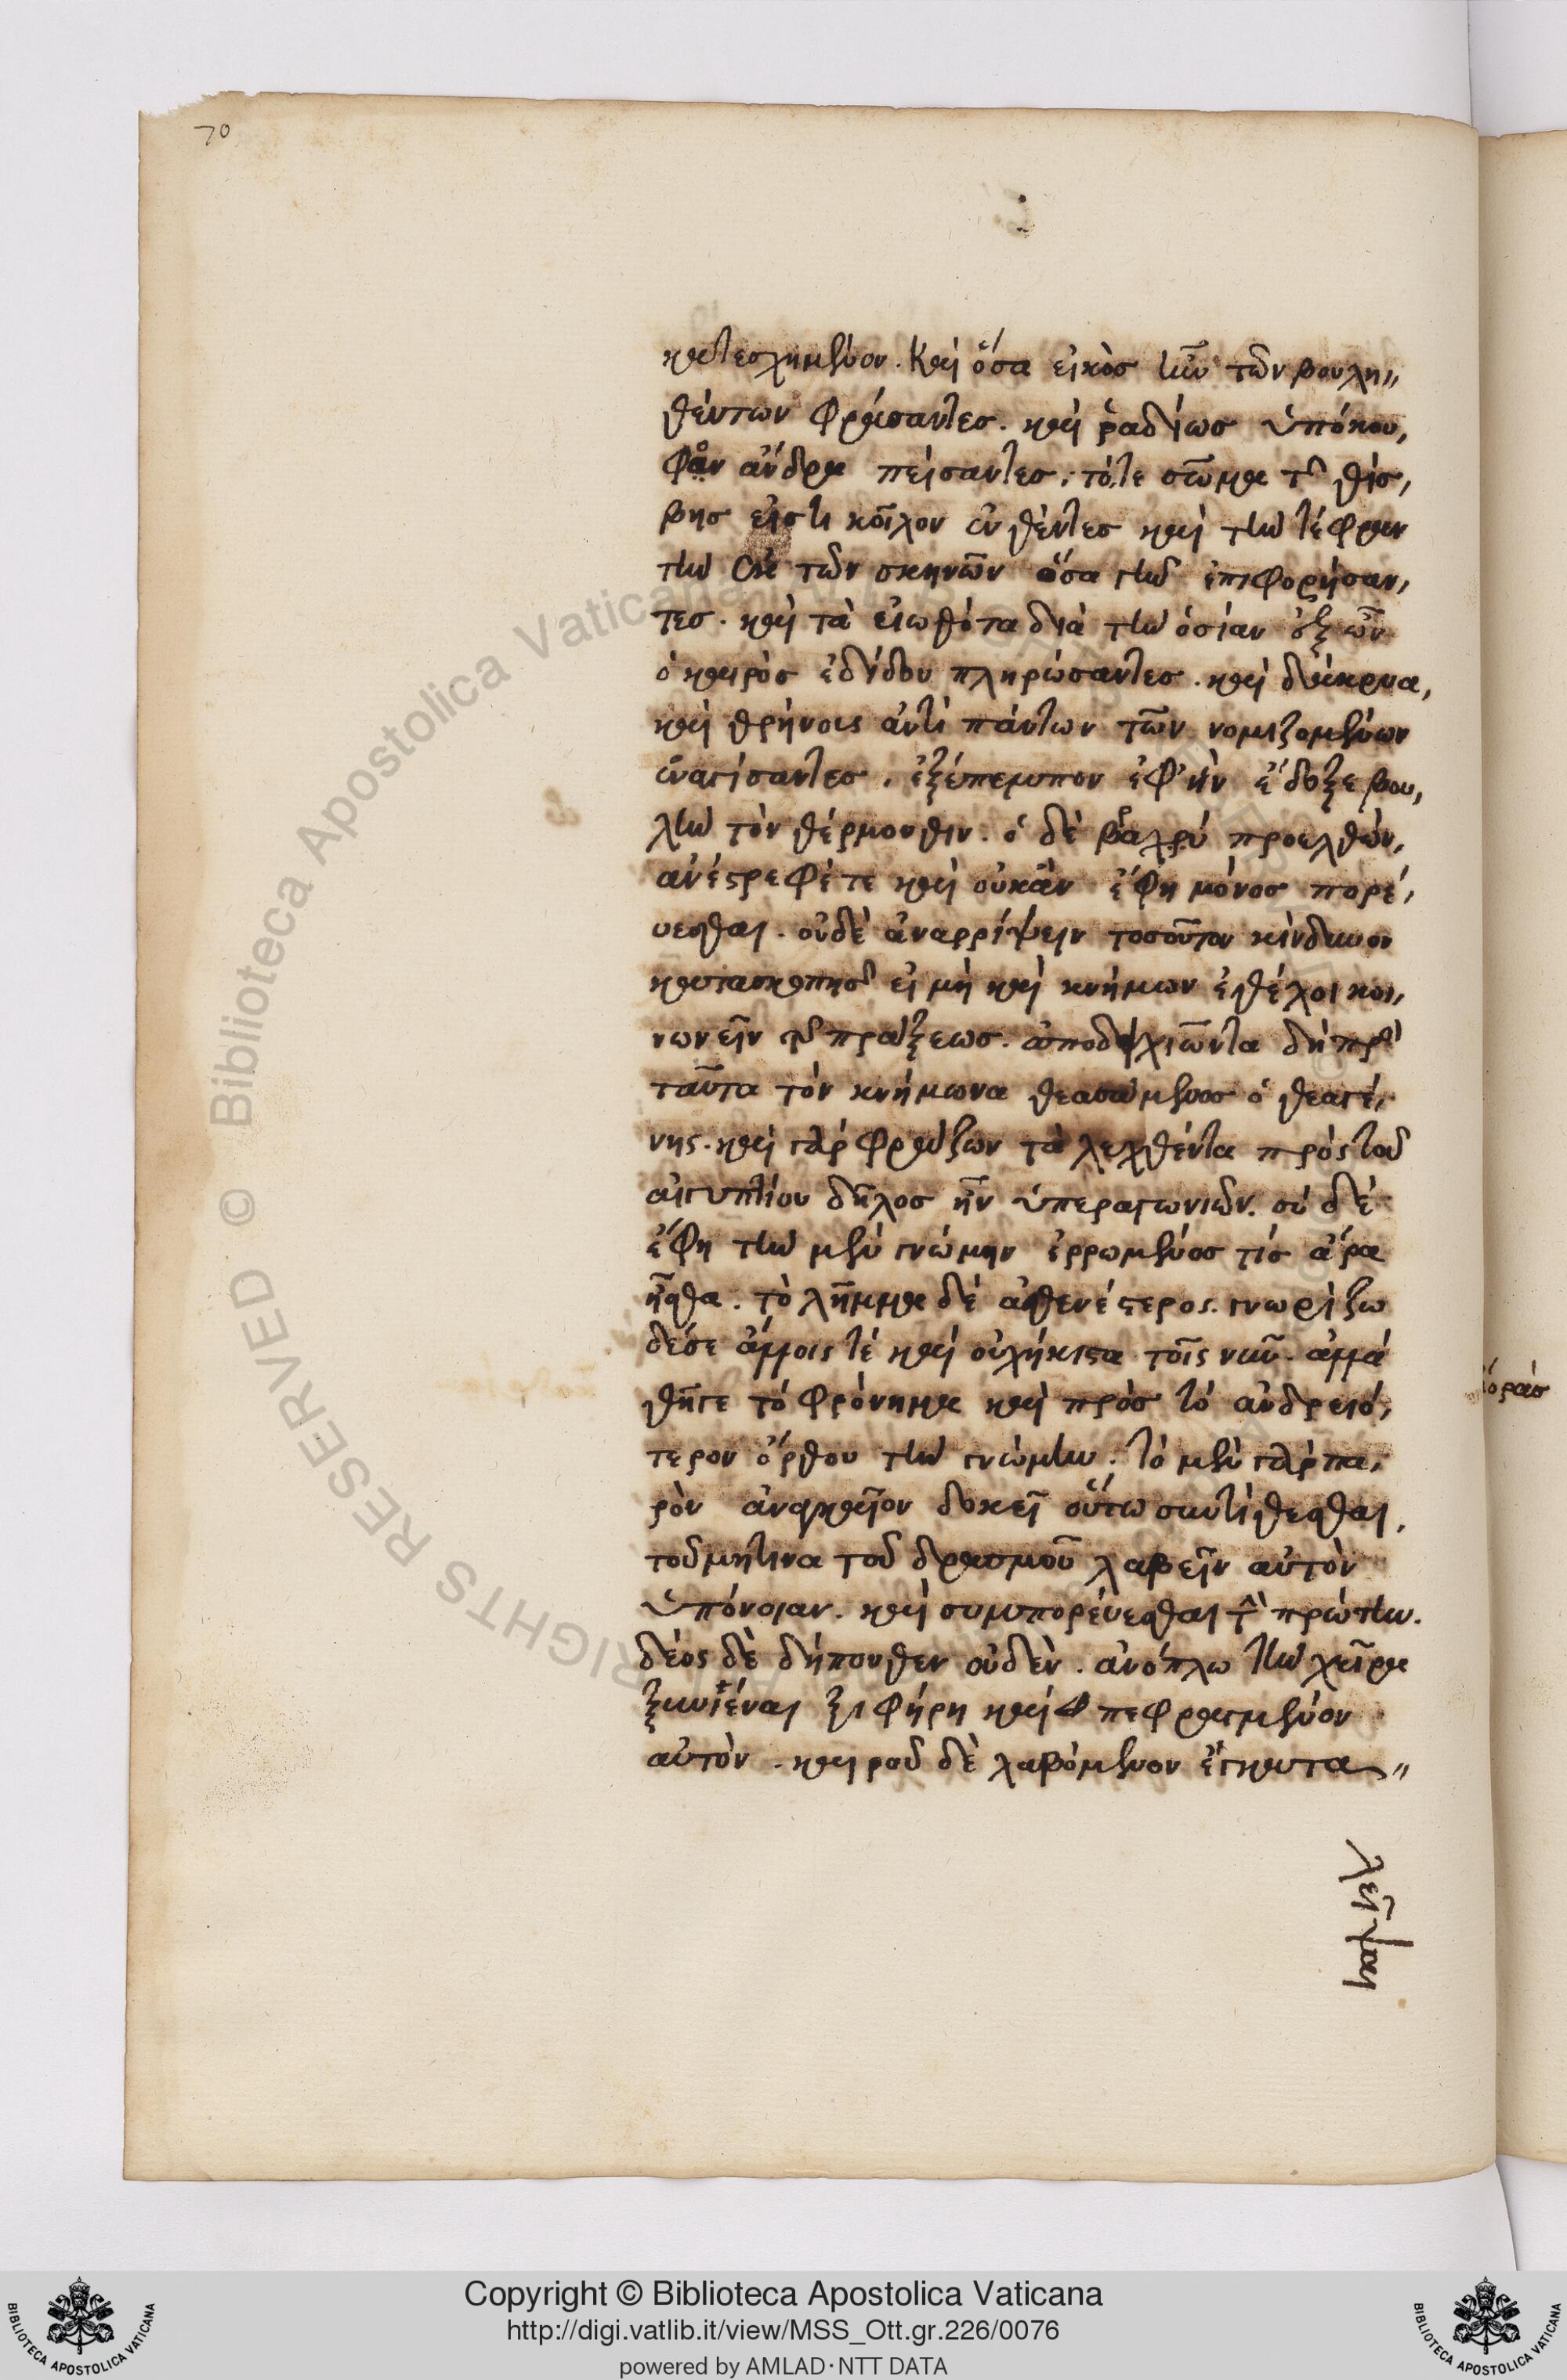 70
κατεσχημένον. Καὶ ὅσα εἰκὸσ ἦν τῶν βουλη〃
θέντων φράσαντεσ. καὶ ῥαδίωσ ὑπόκου,
φον ἄνδρα πείσαντεσ. τότε σῶμα τῆς θίσ,
βησ εἴστι κοῖλον ἐνθέντεσ καὶ τὴν τέφραν
τὴν ἐκ τῶν σκηνῶν ὅσα γῆν ἐπιφορήσαν,
τεσ. καὶ τὰ εἰωθότα διὰ τὴν ὁσίαν ἐξ ὧν
ὁ καιρὸσ ἐδίδου πληρώσαντεσ. καὶ δάκρυα,
καὶ θρήνοις ἀντὶ πάντων τῶν νομιζομένων
ἐναγίσαντεσ. ἐξέπεμπον ἐφ' ἣν ἔδοξε βου,
λὴν τὸν θέρμουθιν. ὁ δὲ βραχὺ προελθών,
ἀνέστρεφέ τε καὶ οὐκ ἂν ἔφη μόνοσ πορέ,
υεσθαι. οὐδὲ ἀναρρίψειν τοσοῦτον κίνδυνον
κατασκοπῆσ εἰ μὴ καὶ κνήμων ἐθέλοι κοι,
νωνεῖν τῆς πράξεωσ. ἀποδειλιῶντα δὴ πρὸσ
ταῦτα τὸν κνήμωνα θεασάμενοσ ὁ θεαγέ,
νης. καὶ γὰρ φράζων τὰ λεχθέντα πρὸς τοῦ
αἰγυπτίου δῆλοσ ἦν ὑπεραγωνιῶν. σὺ δὲ
ἔφη τὴν μὲν γνώμην ἐρρωμένοσ τίσ ἄρα
ἦσθα. τὸ λῆμμα δὲ ἀσθενέστερος. γνωρίζω
δέ σε ἄλλοις τέ καὶ οὐχήκιστα τοῖς νῦν. ἀλλὰ
θῆγε τὸ φρόνημα καὶ πρὸσ τὸ ἀνδρειό,
τερον ὄρθου τὴν γνώμην. τὸ μὲν γὰρ πα,
ρὸν ἀναγκαῖον δοκεῖ οὕτω συντίθεσθαι,
τοῦ μή τινα τοῦ δρασμοῦ λαβεῖν αὐτὸν
ὑπόνοιαν. καὶ συμπορεύεσθαι τὴν πρώτην.
δέος δὲ δήπουθεν οὐδὲν. ἀνόπλω τὴν χεῖρα
ξυνϊέναι ξιφήρη καὶ πεφραγμένον
αὐτὸν. καιροῦ δὲ λαβόμενον ἐγκατα〃
λεῖψαι
ὁράσ
Copyright © Biblioteca Apostolica Vaticana
http://digi.vatlib.it/view/MSS_Ott.gr.226/0076
powered by AMLAD·NTT DATA
BIBLIOTECA APOSTOLICA VATICANA
BIBLIOTECA APOSTOLICA VATICANA